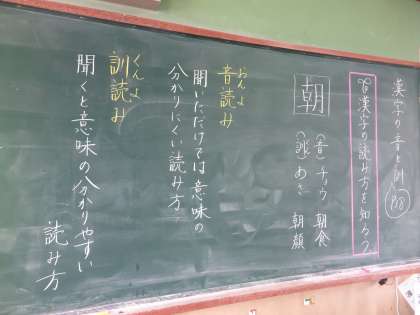 漢字の音と訓 P18
漢字の読み方を知ろう
朝
(音)チョウ 朝食
(訓)あさ 朝顔
おんよ
音読み
聞いただけでは意味の
分かりにくい読み方。
くんよ
訓読み
聞くと意味の分かりやすい
読み方